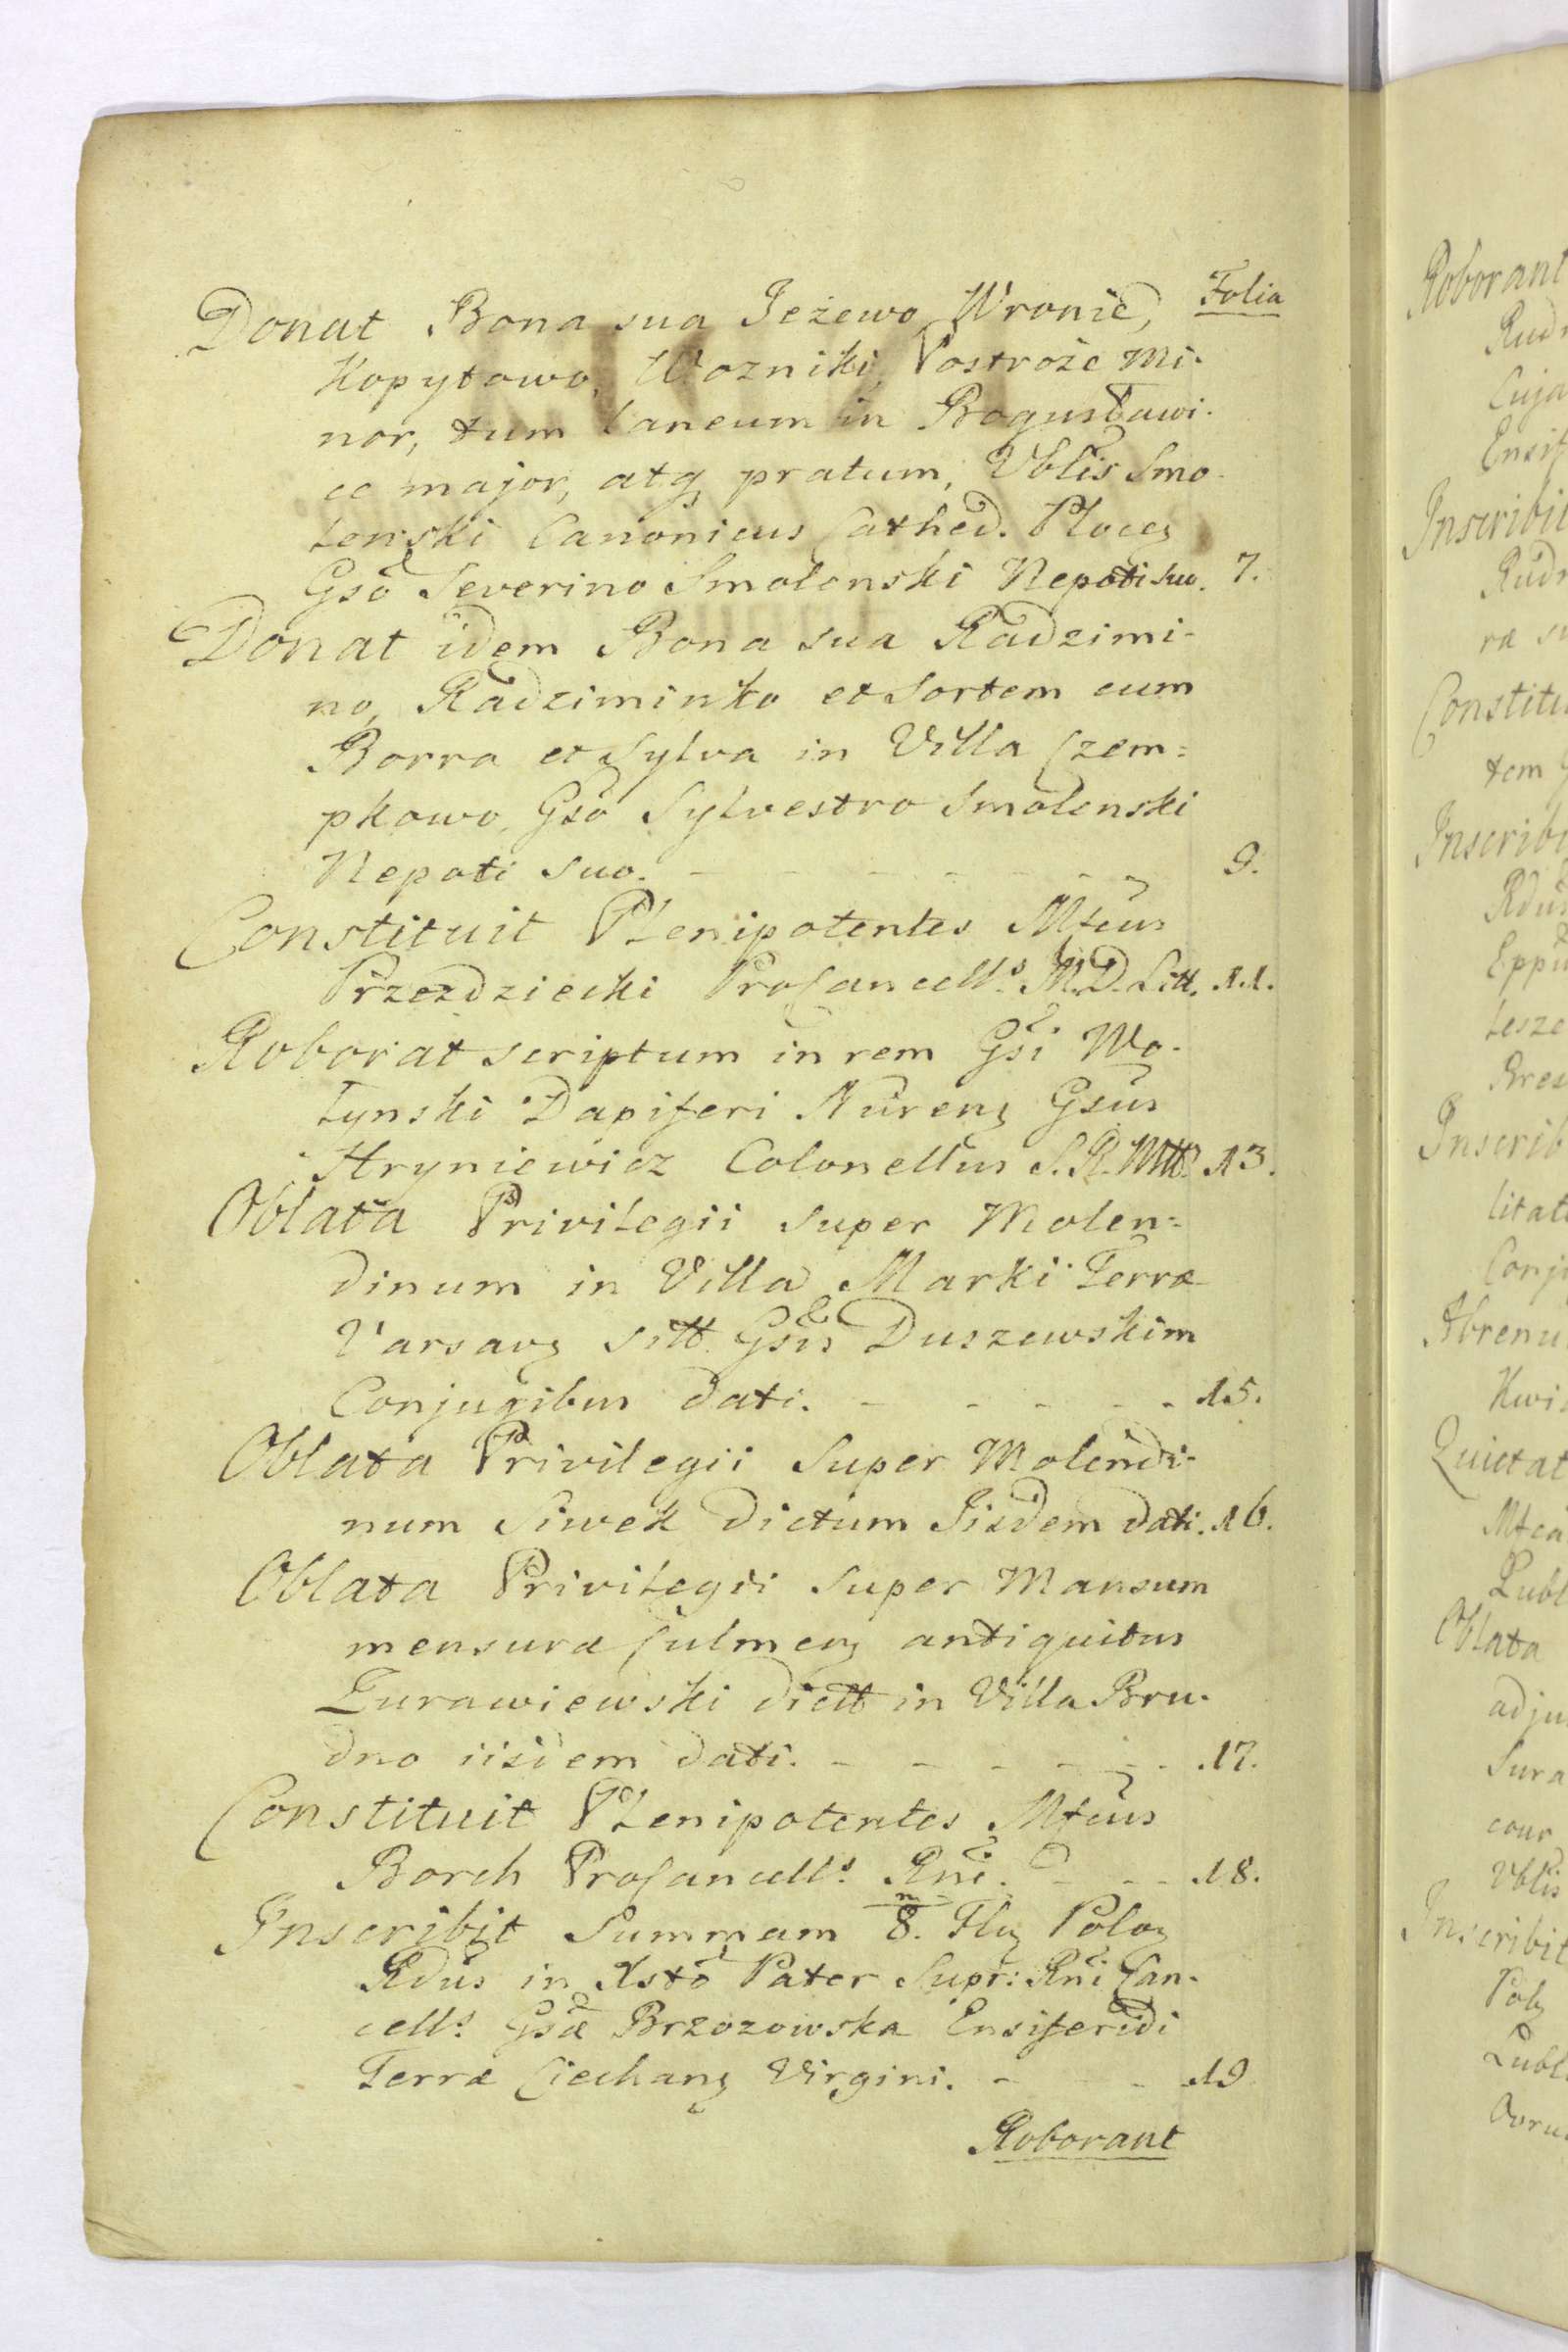 Folia
Donat Bona sua Jeżewo, Wronie,
Kopytowo, Wozniki, Postroże Mi-
nor, tum Laneum in Bogusławi-
ce major, atq pratum, Vblis Smo-
lenski Canonicus Cathed. Plocz
Gsō Severino Smolenski Nepoti suo. 7.
Donat idem Bona sua Radzimi-
no, Radziminko et Sortem cum
Borra et Sylva in Villa Czem=
pkowo, Gsō Sylvestro Smolenski
Nepoti suo. - - - - - - 9.
Constituit Plenipotentes Mfcus
Przezdziecki ProCancells. M.D. Litt. 11.
Roborat scriptum in rem Gsi Wo-
łynski Dapiferi Nurenz Gsus
Hryniewicz Colonellus S.R.Mtt. 13.
Oblata Privilegii super Molen=
dinum in Villa Marki Terræ
Varsavz sitt. Gsis Duszewskim
Conjugibus dati. - - - - - 15.
Oblata Privilegii Super Molendi-
num Siwek dictum Iisdem dati. 16.
Oblata Privilegii Super Mansum
mensuræ Culmenz antiquitus
Zurawiewski dictt in Villa Bru-
dno iisdem dati. - - - - - 17.
Constituit Plenipotentes Mfcus
Borch ProCancells. Rni. - - - 18.
Inscribit Summam 8.m Flnz Poloz
Rdus in Xsto Pater Supr: Rni Can-
cells. Gsæ Brzozowska Ensiferidi
Terræ Ciechanz Virgini. - - - 19
Roborant
Roborant
Rudn
Cuja
Ensif
Inscribit
Rudn
ræ su
Constitu
tem G
Inscribi
Rdus
Eppu
lesze
Bres
Inscrib
litat
Conju
Abrenu
Kwi
Quietat
Mfca
Lubl
Oblata
adju
Sura
cour
Vblis
Inscribit
Polz
Lubl
Ovru